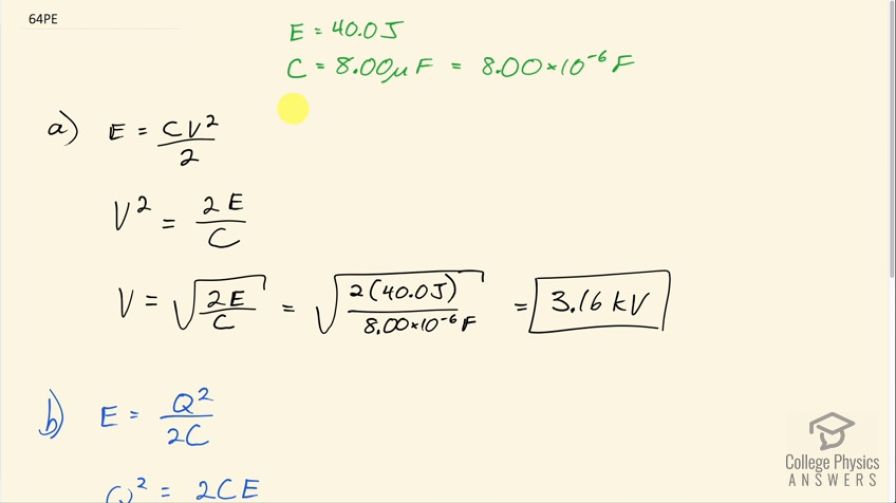 64PE
E = 40.0J
C = 8.00μF = 8.00×10⁻⁶ F
a) E = CV²/2
V² = 2E/C
V = √(2E/C) = √(2(40.0J)/8.00×10⁻⁶F) = 3.16 kV
b) E = Q²/2C
Q² = 2CE
College Physics
ANSWERS